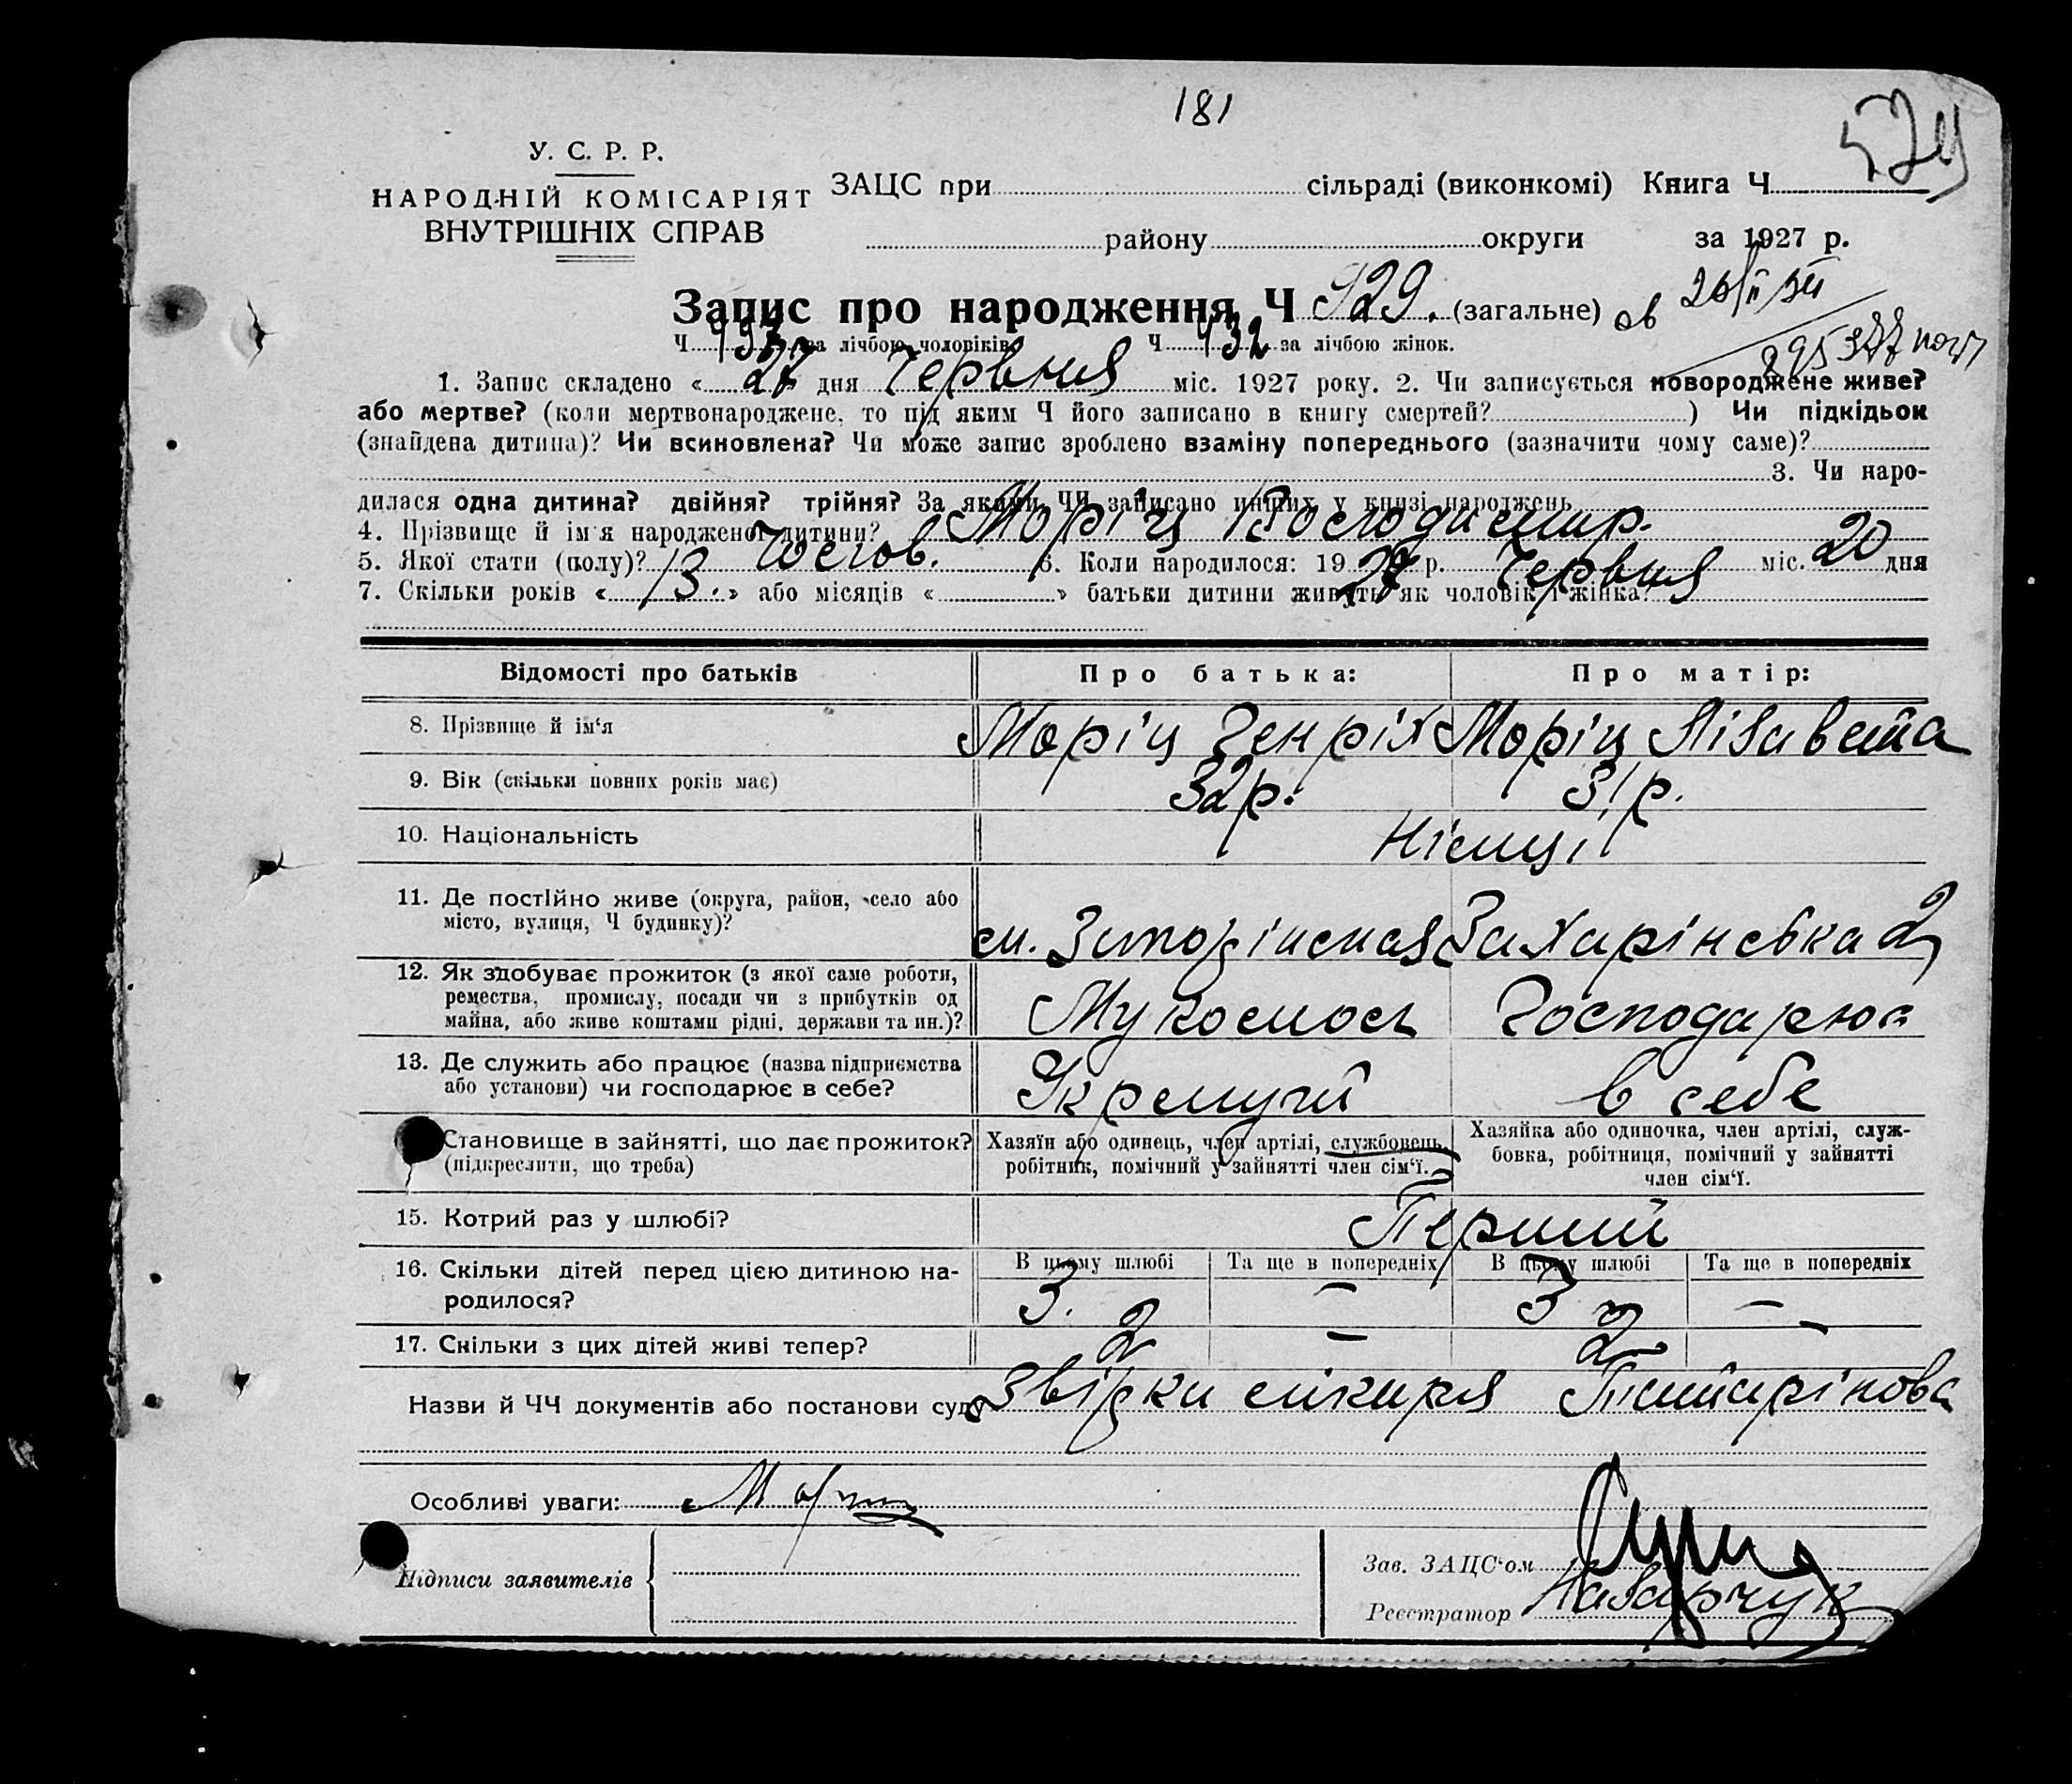 181
У. С. Р. Р.
НАРОДНІЙ КОМІСАРІЯТ
ВНУТРІШНІХ СПРАВ
ЗАЦС при сільраді (виконкомі) Книга Ч.
району округи за 1927 р.
Запис про народження Ч 929. (загальне)
Ч за лічбою чоловіків Ч 432 за лічбою жінок.
1. Запис складено « 27 дня Червня міс. 1927 року. 2. Чи записується новороджене живе?
або мертве? (коли мертвонароджене, то під яким Ч його записано в книгу смертей? ) Чи підкідьок
(знайдена дитина)? Чи всиновлена? Чи може запис зроблено взаміну попереднього (зазначити чому саме)?
3. Чи наро-
дилася одна дитина? двійня? трійня? За якими ЧЧ записано инших у книзі народжень
4. Прізвище й ім'я народженої дитини? Моріц Володимир.
5. Якої стати (полу)? Чолов. 6. Коли народилося: 1927 р. Червня міс. 20 дня
7. Скільки років « 13. » або місяців « » батьки дитини живуть як чоловік і жінка?
Відомості про батьків Про батька: Про матір:
8. Прізвище й ім'я Моріц Генріх Моріц Лізавета
9. Вік (скільки повних років має) 32р. 31р.
10. Національність Німці
11. Де постійно живе (округа, район, село або
місто, вулиця, Ч будинку)? Захарінська 2
12. Як здобуває прожиток (з якої саме роботи,
ремества, промислу, посади чи з прибутків од
майна, або живе коштами рідні, держави та ин.)? Мукомол Господарює
13. Де служить або працює (назва підприємства
або установи) чи господарює в себе? в себе
Становище в зайнятті, що дає прожиток?
(підкреслити, що треба)
Хазяїн або одинець, член артілі, службовець,
робітник, помічний у зайнятті член сім'ї.
Хазяйка або одиночка, член артілі, служ-
бовка, робітниця, помічний у зайнятті
член сім'ї.
15. Котрий раз у шлюбі? Перший
16. Скільки дітей перед цією дитиною на-
родилося?
В цьому шлюбі Та ще в попередніх В цьому шлюбі Та ще в попередніх
3. – 3 –
17. Скільки з цих дітей живі тепер? 2 – 2 –
Назви й ЧЧ документів або постанови суду Звідки лікаря
Особливі уваги:
Підписи заявителів
Зав. ЗАЦС'ом
Реєстратор